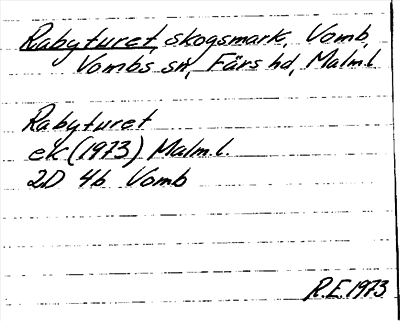 Rabyturet, skogsmark, Vomb,
Vombs sn, Färs hd, Malm.l.
Rabyturet
ek (1973) Malm.l.
2D 4b Vomb
R.E. 1973